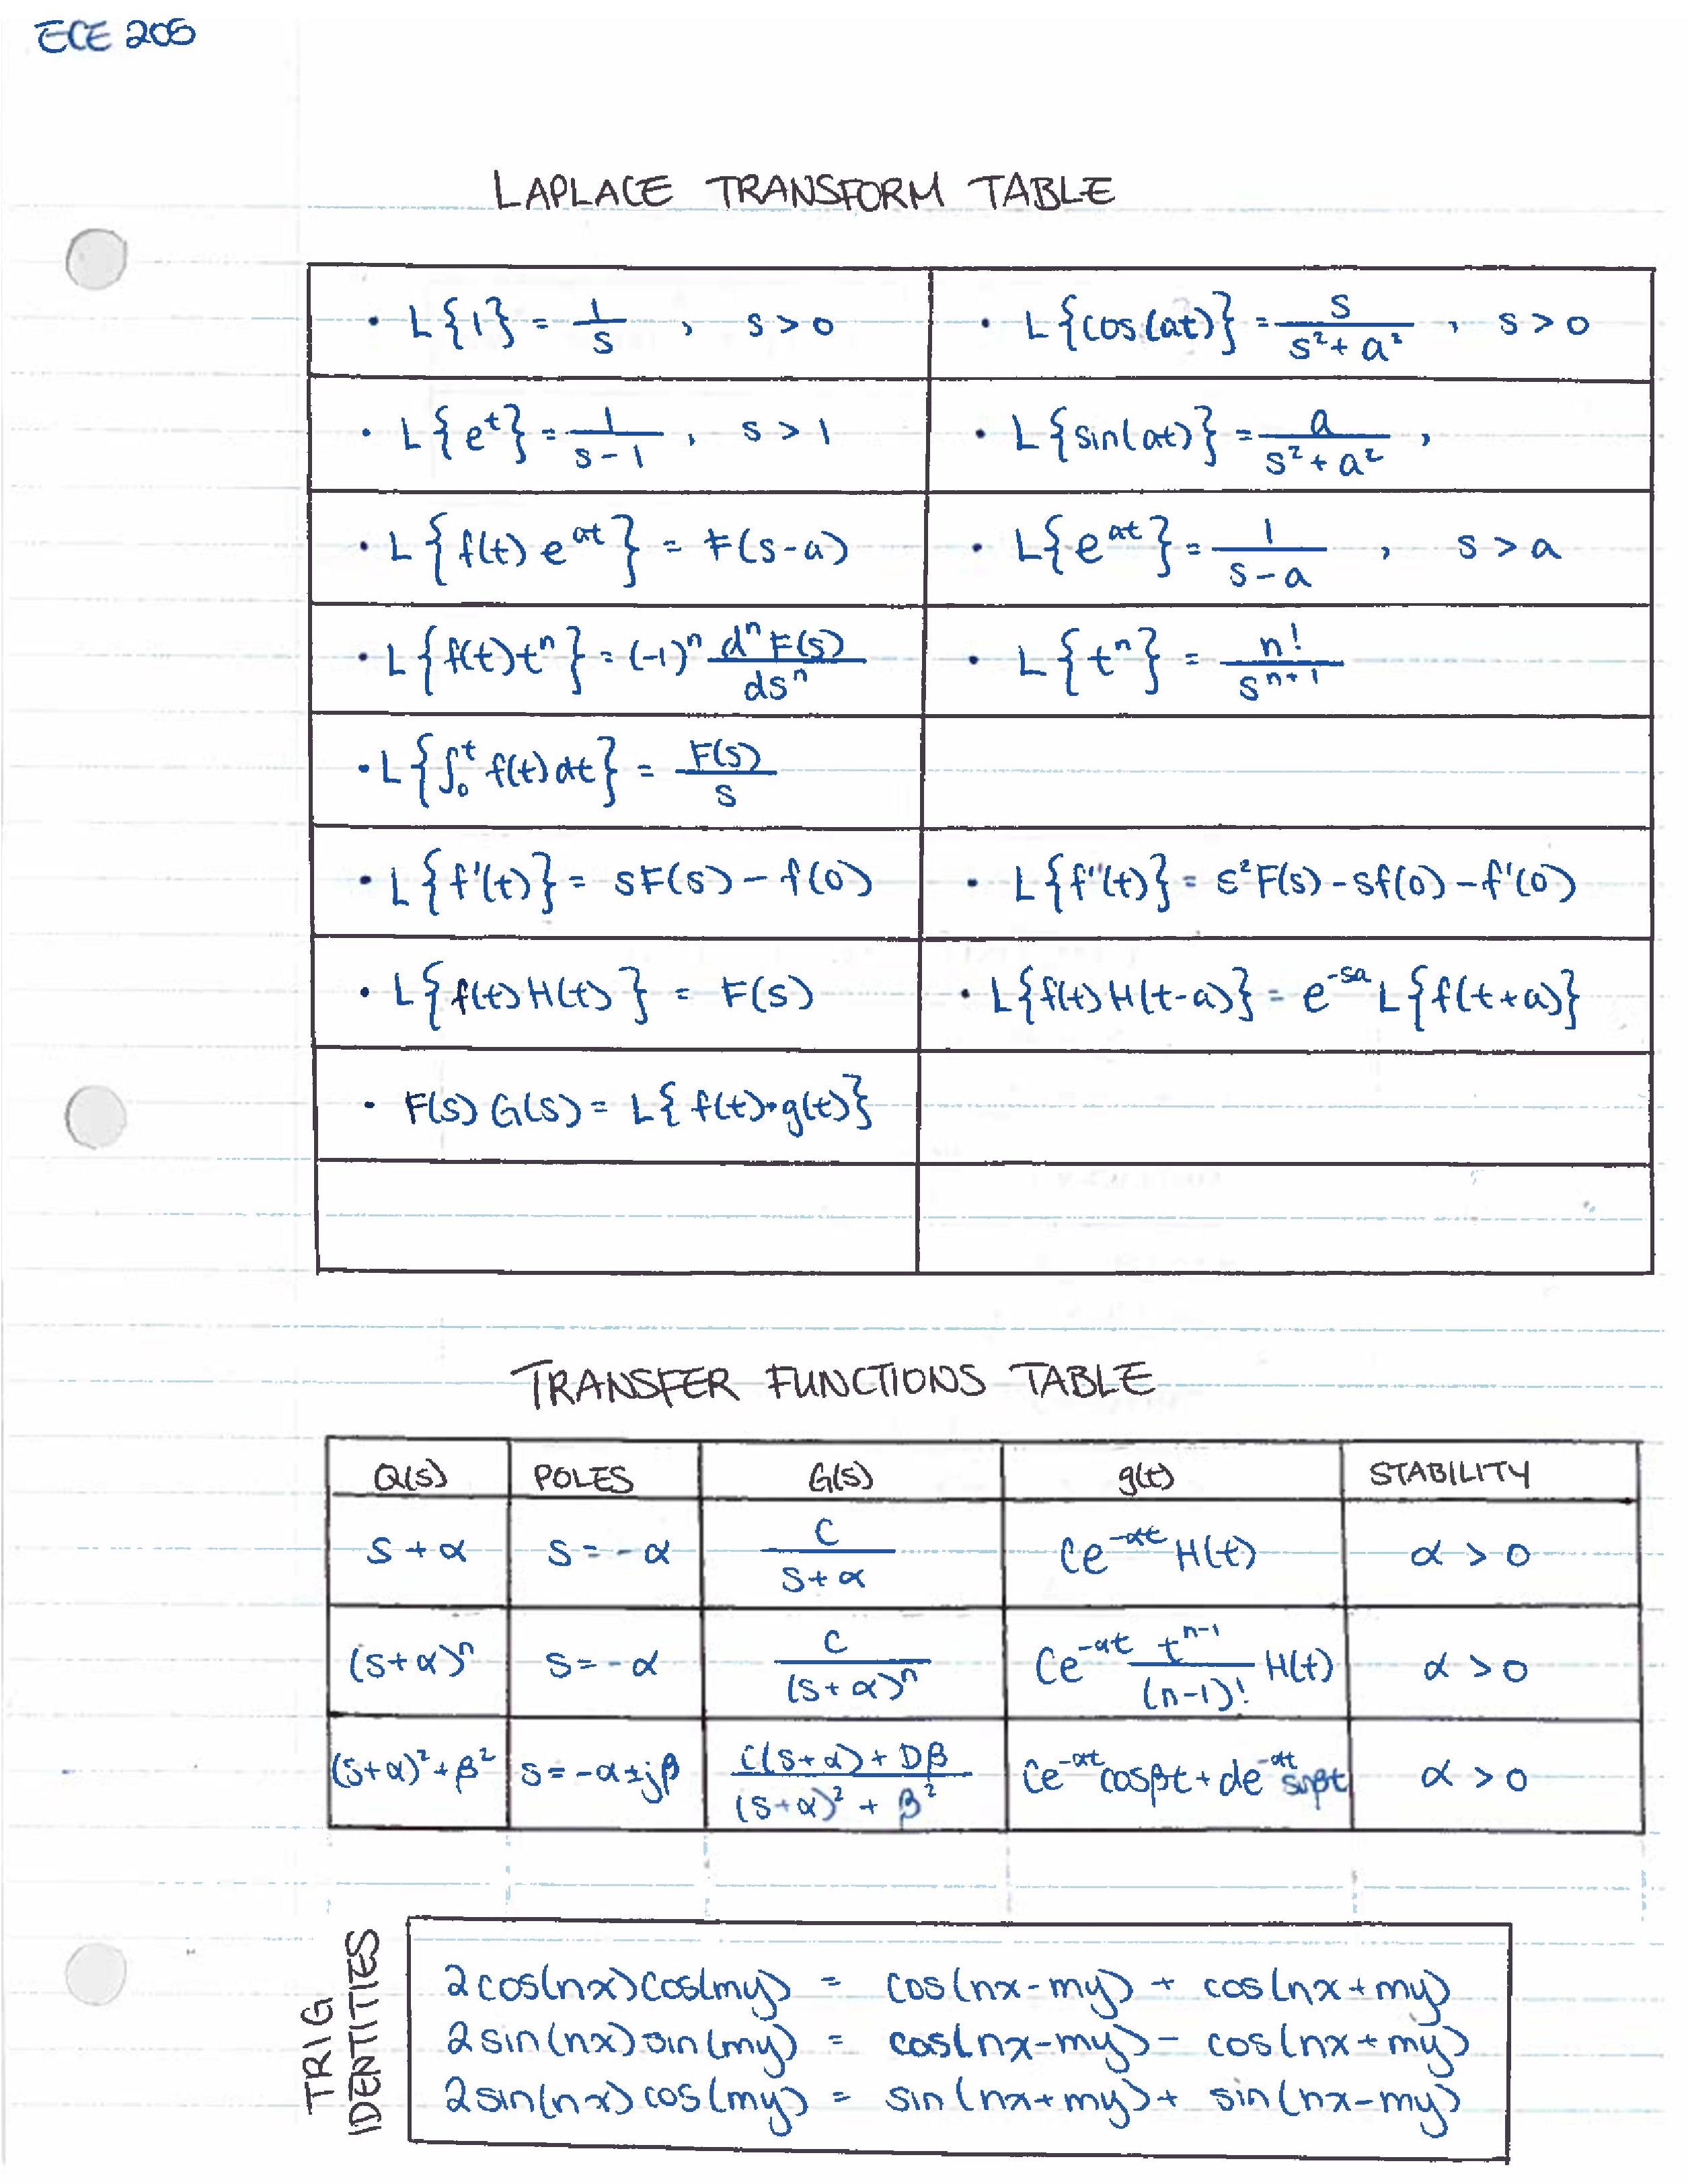 ECE 205
LAPLACE TRANSFORM TABLE
• L{1} = 1/s , s > 0
• L{cos(at)} = s/(s²+a²) , s > 0
• L{e^t} = 1/(s-1) , s > 1
• L{sin(at)} = a/(s²+a²) ,
• L{f(t) e^at} = F(s-a)
• L{e^at} = 1/(s-a) , s > a
• L{f(t)t^n} = (-1)^n d^n F(s)/ds^n
• L{t^n} = n!/s^(n+1)
• L{∫₀^t f(t)dt} = F(s)/s
• L{f'(t)} = sF(s) - f(0)
• L{f''(t)} = s²F(s) - sf(0) - f'(0)
• L{f(t)H(t)} = F(s)
• L{f(t)H(t-a)} = e^-sa L{f(t+a)}
• F(s)G(s) = L{f(t)*g(t)}
TRANSFER FUNCTIONS TABLE
Q(s) POLES G(s) g(t) STABILITY
s+α s=-α C/(s+α) Ce^-αt H(t) α > 0
(s+α)^n s=-α C/(s+α)^n Ce^-αt t^(n-1)/(n-1)! H(t) α > 0
(s+α)²+β² s=-α±jβ (C(s+α)+Dβ)/((s+α)²+β²) Ce^-αt cosβt + de^-αt sinβt α > 0
TRIG
IDENTITIES
2cos(nx)cos(my) = cos(nx-my) + cos(nx+my)
2sin(nx)sin(my) = cos(nx-my) - cos(nx+my)
2sin(nx)cos(my) = sin(nx+my) + sin(nx-my)